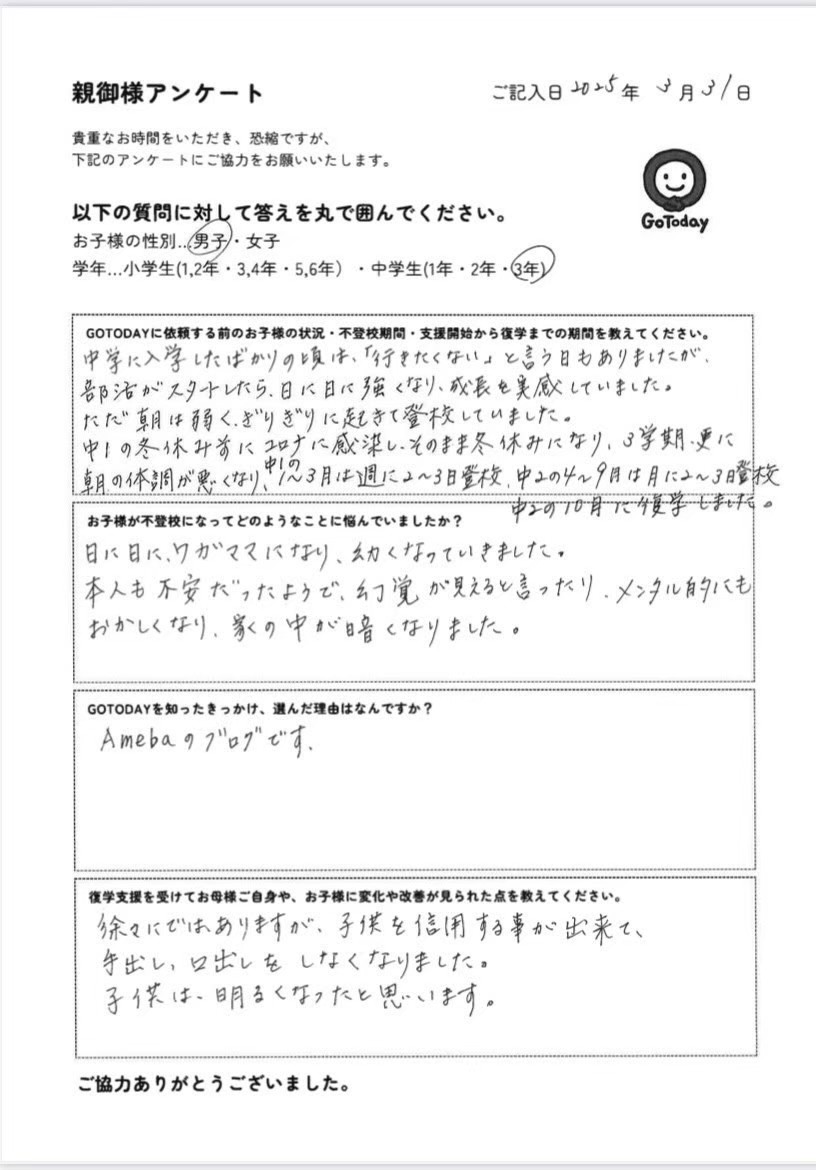 親御様アンケート
ご記入日 2025年 3月31日
貴重なお時間をいただき、恐縮ですが、
下記のアンケートにご協力をお願いいたします。
GoToday
以下の質問に対して答えを丸で囲んでください。
お子様の性別…男子・女子
学年…小学生(1,2年・3,4年・5,6年）・中学生(1年・2年・3年)
GOTODAYに依頼する前のお子様の状況・不登校期間・支援開始から復学までの期間を教えてください。
中学に入学したばかりの頃は、「行きたくない」と言う日もありましたが、
部活がスタートしたら、日に日に強くなり、成長を実感していました。
ただ朝は弱く、ぎりぎりに起きて登校していました。
中1の冬休み前にコロナに感染し、そのまま冬休みになり、3学期、更に
朝の体調が悪くなり、中1の1〜3月は週に2〜3日登校、中2の4〜9月は月に2〜3日登校
中2の10月に復学しました。
お子様が不登校になってどのようなことに悩んでいましたか？
日に日に、ワガママになり、幼くなっていきました。
本人も不安だったようで、幻覚が見えると言ったり、メンタル的にも
おかしくなり、家の中が暗くなりました。
GOTODAYを知ったきっかけ、選んだ理由はなんですか？
Amebaのブログです、
復学支援を受けてお母様ご自身や、お子様に変化や改善が見られた点を教えてください。
徐々にではありますが、子供を信用する事が出来て、
手出し、口出しをしなくなりました。
子供は、明るくなったと思います。
ご協力ありがとうございました。